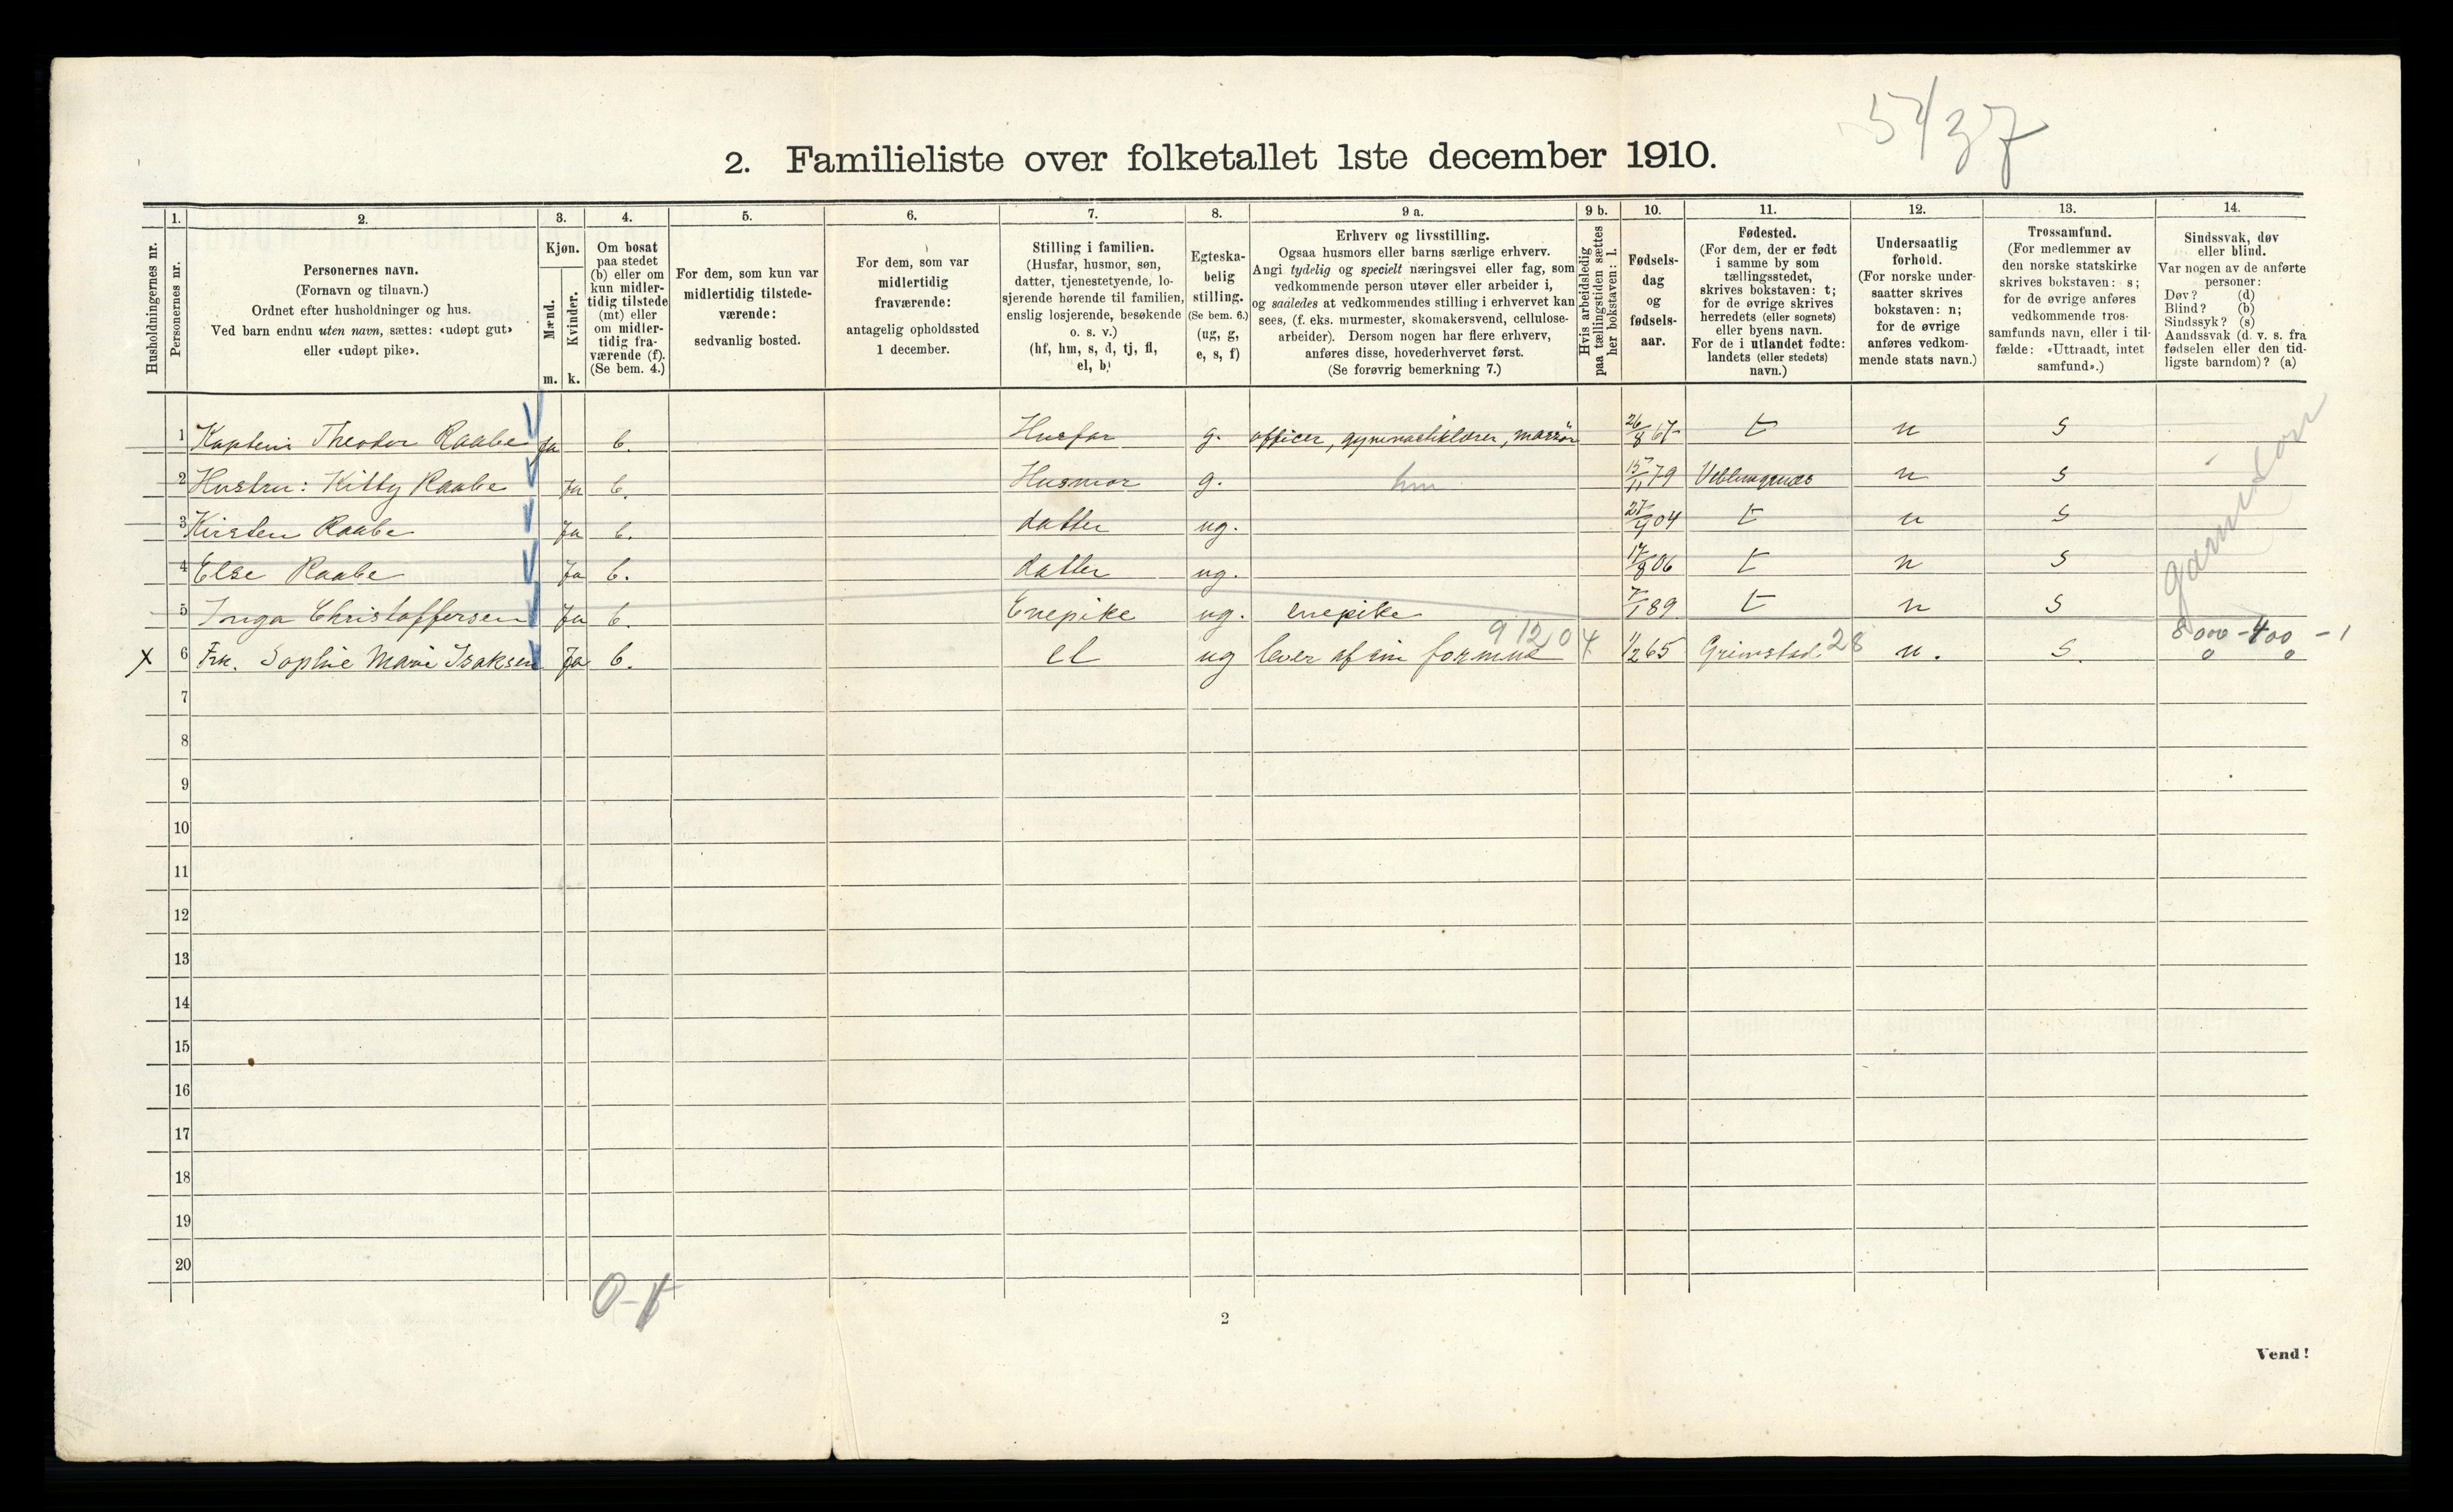 54/37
2. Familieliste over folketallet 1ste december 1910.
Husholdningernes nr.
1.
Personernes nr.
2.
Personernes navn.
(Fornavn og tilnavn.)
Ordnet efter husholdninger og hus.
Ved barn endnu uten navn, sættes: «udøpt gut»
eller «udøpt pike».
3.
Kjøn.
Mænd.
m.
Kvinder.
k.
4.
Om bosat
paa stedet
(b) eller om
kun midler-
tidig tilstede
(mt) eller
om midler-
tidig fra-
værende (f).
(Se bem. 4.)
5.
For dem, som kun var
midlertidig tilstede-
værende:
sedvanlig bosted.
6.
For dem, som var
midlertidig
fraværende:
antagelig opholdssted
1 december.
7.
Stilling i familien.
(Husfar, husmor, søn,
datter, tjenestetyende, lo-
sjerende hørende til familien,
enslig losjerende, besøkende
o. s. v.)
(hf, hm, s, d, tj, fl,
el, b)
8.
Egteska-
belig
stilling.
(Se bem. 6.)
(ug, g,
e, s, f)
9 a.
Erhverv og livsstilling.
Ogsaa husmors eller barns særlige erhverv.
Angi tydelig og specielt næringsvei eller fag, som
vedkommende person utøver eller arbeider i,
og saaledes at vedkommendes stilling i erhvervet kan
sees, (f. eks. murmester, skomakersvend, cellulose-
arbeider). Dersom nogen har flere erhverv,
anføres disse, hovederhvervet først.
(Se forøvrig bemerkning 7.)
9 b.
Hvis arbeidsledig
paa tællingstiden sættes
her bokstaven: l.
10.
Fødsels-
dag
og
fødsels-
aar.
11.
Fødested.
(For dem, der er født
i samme by som
tællingsstedet,
skrives bokstaven: t;
for de øvrige skrives
herredets (eller sognets)
eller byens navn.
For de i utlandet fødte:
landets (eller stedets)
navn.)
12.
Undersaatlig
forhold.
(For norske under-
saatter skrives
bokstaven: n;
for de øvrige
anføres vedkom-
mende stats navn.)
13.
Trossamfund.
(For medlemmer av
den norske statskirke
skrives bokstaven: s;
for de øvrige anføres
vedkommende tros-
samfunds navn, eller i til-
fælde: «Uttraadt, intet
samfund».)
14.
Sindssvak, døv
eller blind.
Var nogen av de anførte
personer:
Døv? (d)
Blind? (b)
Sindssyk? (s)
Aandssvak (d. v. s. fra
fødselen eller den tid-
ligste barndom)? (a)
1 Kaptein Theodor Raabe Ja b. Husfar g. officer, gymnastiklærer, massör 26/8 67 t n s
2 Hustru: Kitty Raabe Ja b. Husmor g. hm 15/11 79 n s
3 Kirsten Raabe Ja b. datter ug. 04 t n s
4 Else Raabe Ja b. datter ug. 17/8 06 t n s
5 Inga Christoffersen Ja b. Enepike ug. enepike 7/1 89 t n s
garnison
X 6 Frk. Sophie Marie Isaksen Ja b. el ug lever af sin formue 91204 1/2 65 Grimstad. 28 n. s. 8000 - 400 - 1
0 0
7
8
9
10
11
12
13
14
15
16
17
18
19
20
0-1
2
Vend!